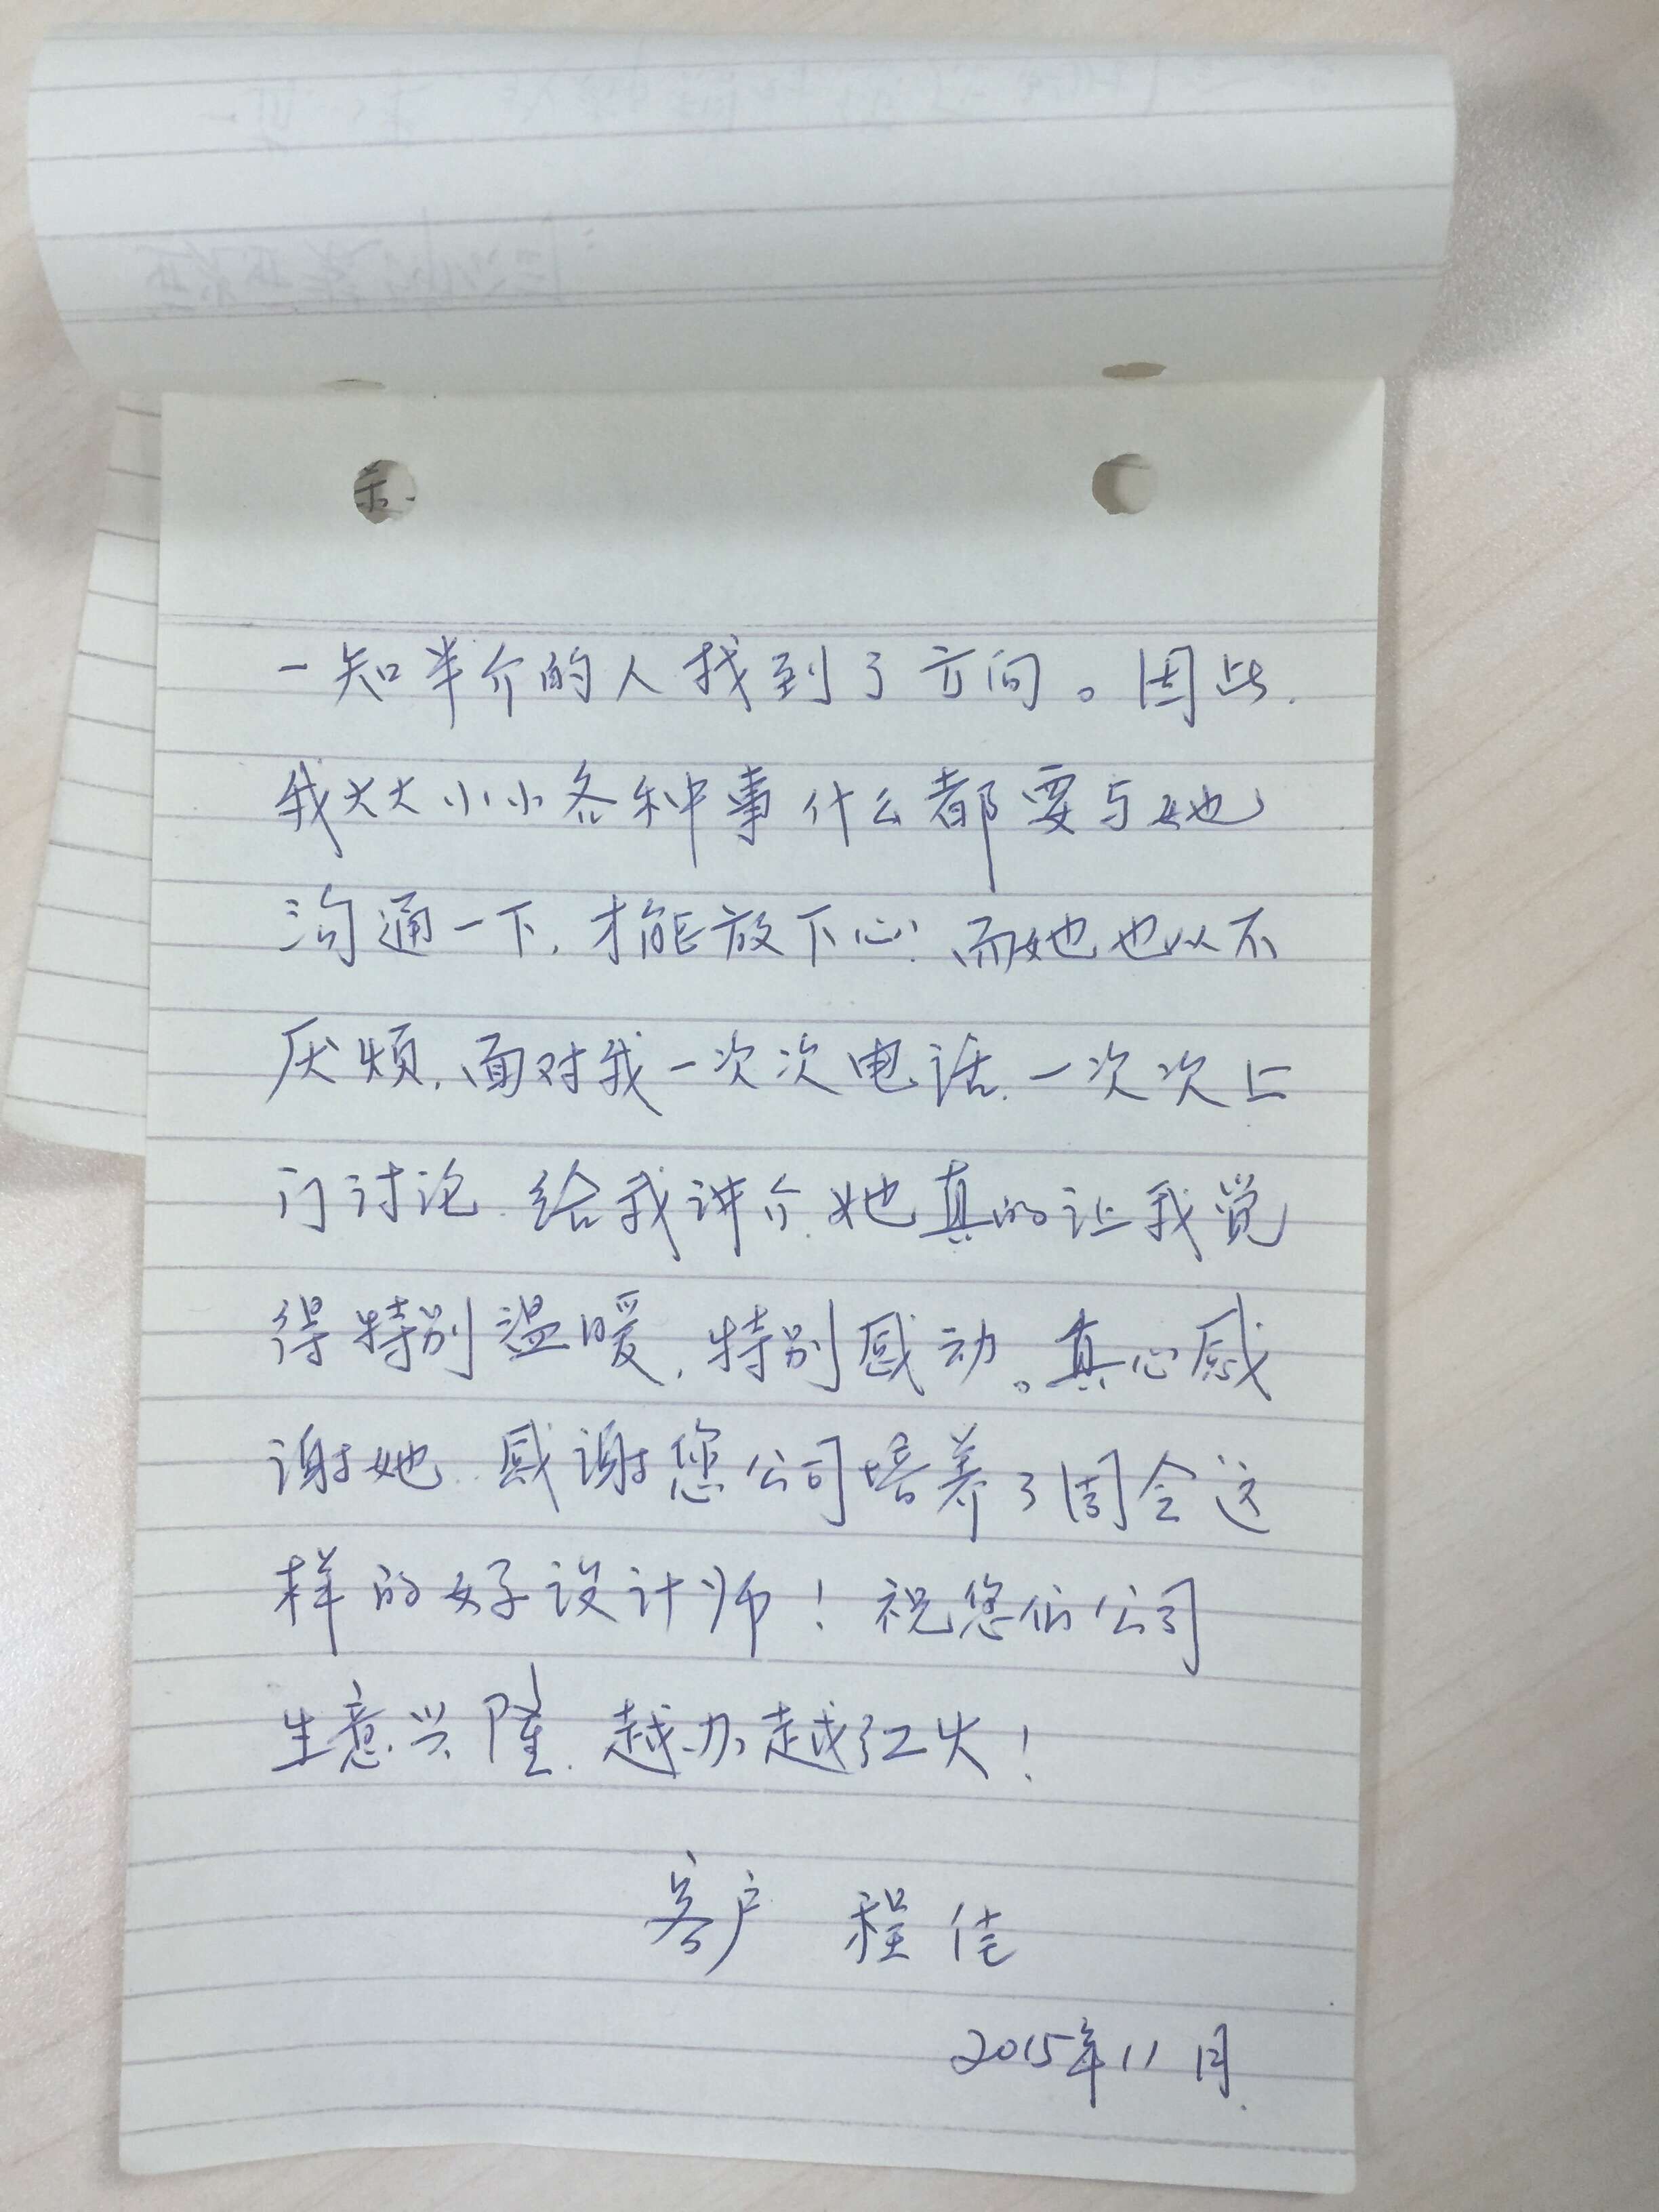 一知半介的人找到了方向。因此.
我大大小小各种事什么都要与她
沟通一下,才能放下心.而她也从不
厌烦.面对我一次次电话.一次次上
门讨论.给我讲介.她真的让我觉
得特别温暖,特别感动。真心感
谢她.感谢您公司培养了周全这
样的好设计师!祝您们公司
生意兴隆.越办越红火!
客户 程佳
2015年11月.